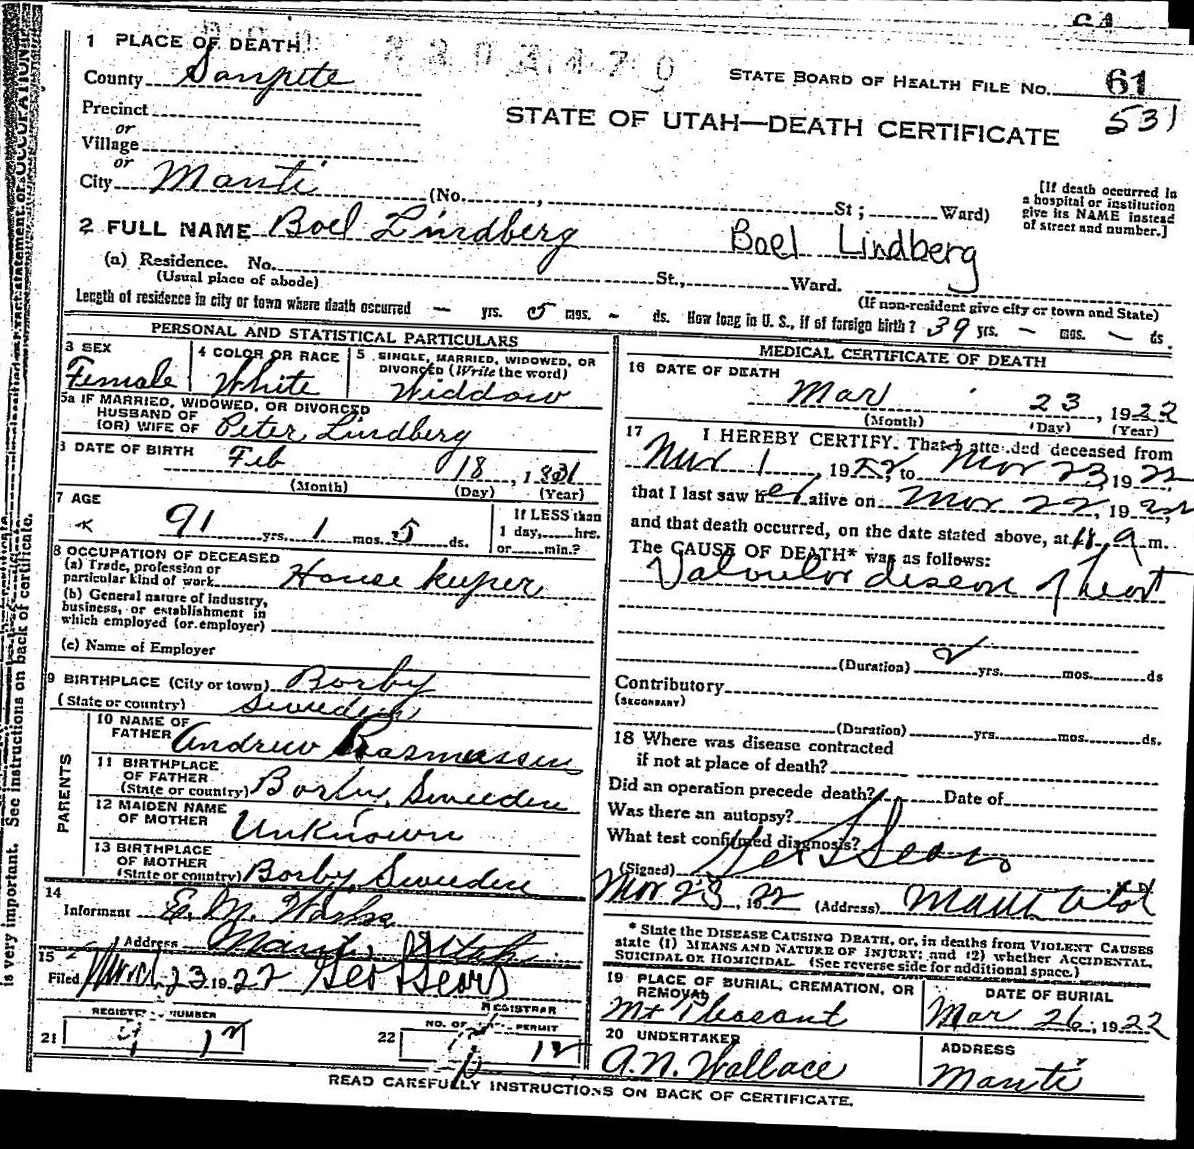 1 PLACE OF DEATH
County Sanpete
STATE BOARD OF HEALTH FILE NO. 61
531
Precinct
or
Village
or
STATE OF UTAH—DEATH CERTIFICATE
City Manti (No. , St ; Ward)
[If death occurred in a hospital or institution give its NAME instead of street and number.]
2 FULL NAME Boel Lindberg Boel Lindberg
(a) Residence. No. St., Ward.
(Usual place of abode) (If non-resident give city or town and State)
Length of residence in city or town where death occurred — yrs. 5 mos. - ds. How long in U. S., if of foreign birth? 39 yrs. — mos. — ds.
PERSONAL AND STATISTICAL PARTICULARS
3 SEX
Female
4 COLOR OR RACE
White
5 SINGLE, MARRIED, WIDOWED, OR DIVORCED (Write the word)
Widdow
5a IF MARRIED, WIDOWED, OR DIVORCED
HUSBAND OF
(OR) WIFE OF Peter Lindberg
DATE OF BIRTH Feb 18, 1831
(Month) (Day) (Year)
7 AGE
91 yrs. 1 mos. 5 ds.
If LESS than
1 day, hrs.
or min.?
8 OCCUPATION OF DECEASED
(a) Trade, profession or
particular kind of work House keeper
(b) General nature of Industry,
business, or establishment in
which employed (or employer)
(c) Name of Employer
9 BIRTHPLACE (City or town) Borby
(State or country) Sweden
PARENTS
10 NAME OF
FATHER Andrew Rasmussen
11 BIRTHPLACE
OF FATHER
(State or country) Borby, Sweeden
12 MAIDEN NAME
OF MOTHER Unknown
13 BIRTHPLACE
OF MOTHER
(State or country) Borby, Sweeden
14
Informant E. M.
Address Manti, Utah
15
Filed March 23 1922 Geo Sears
REGISTRAR
NUMBER
21
NO. OF PERMIT
22
MEDICAL CERTIFICATE OF DEATH
16 DATE OF DEATH
Mar 23, 1922
(Month) (Day) (Year)
17 I HEREBY CERTIFY, That I attended deceased from
Mar 1, 1922, to Mar 23, 1922
that I last saw her alive on Mar 22, 1922,
and that death occurred, on the date stated above, at 11 a m.
The CAUSE OF DEATH* was as follows:
Valvular disease of heart
(Duration) 2 yrs. mos. ds
Contributory
(SECONDARY)
(Duration) yrs. mos. ds.
18 Where was disease contracted
if not at place of death?
Did an operation precede death? Date of
Was there an autopsy?
What test confirmed diagnosis?
(Signed) Geo Sears
Mar 23, 1922 (Address) Manti Utah
* State the DISEASE CAUSING DEATH, or, in deaths from VIOLENT CAUSES
state (1) MEANS AND NATURE OF INJURY; and (2) whether ACCIDENTAL,
SUICIDAL OR HOMICIDAL. (See reverse side for additional space.)
19 PLACE OF BURIAL, CREMATION, OR
REMOVAL
Mt Pleasant
DATE OF BURIAL
Mar 26, 1922
20 UNDERTAKER
A. N. Wallace
ADDRESS
Manti
READ CAREFULLY INSTRUCTIONS ON BACK OF CERTIFICATE.
is very important. See instructions on back of certificate.